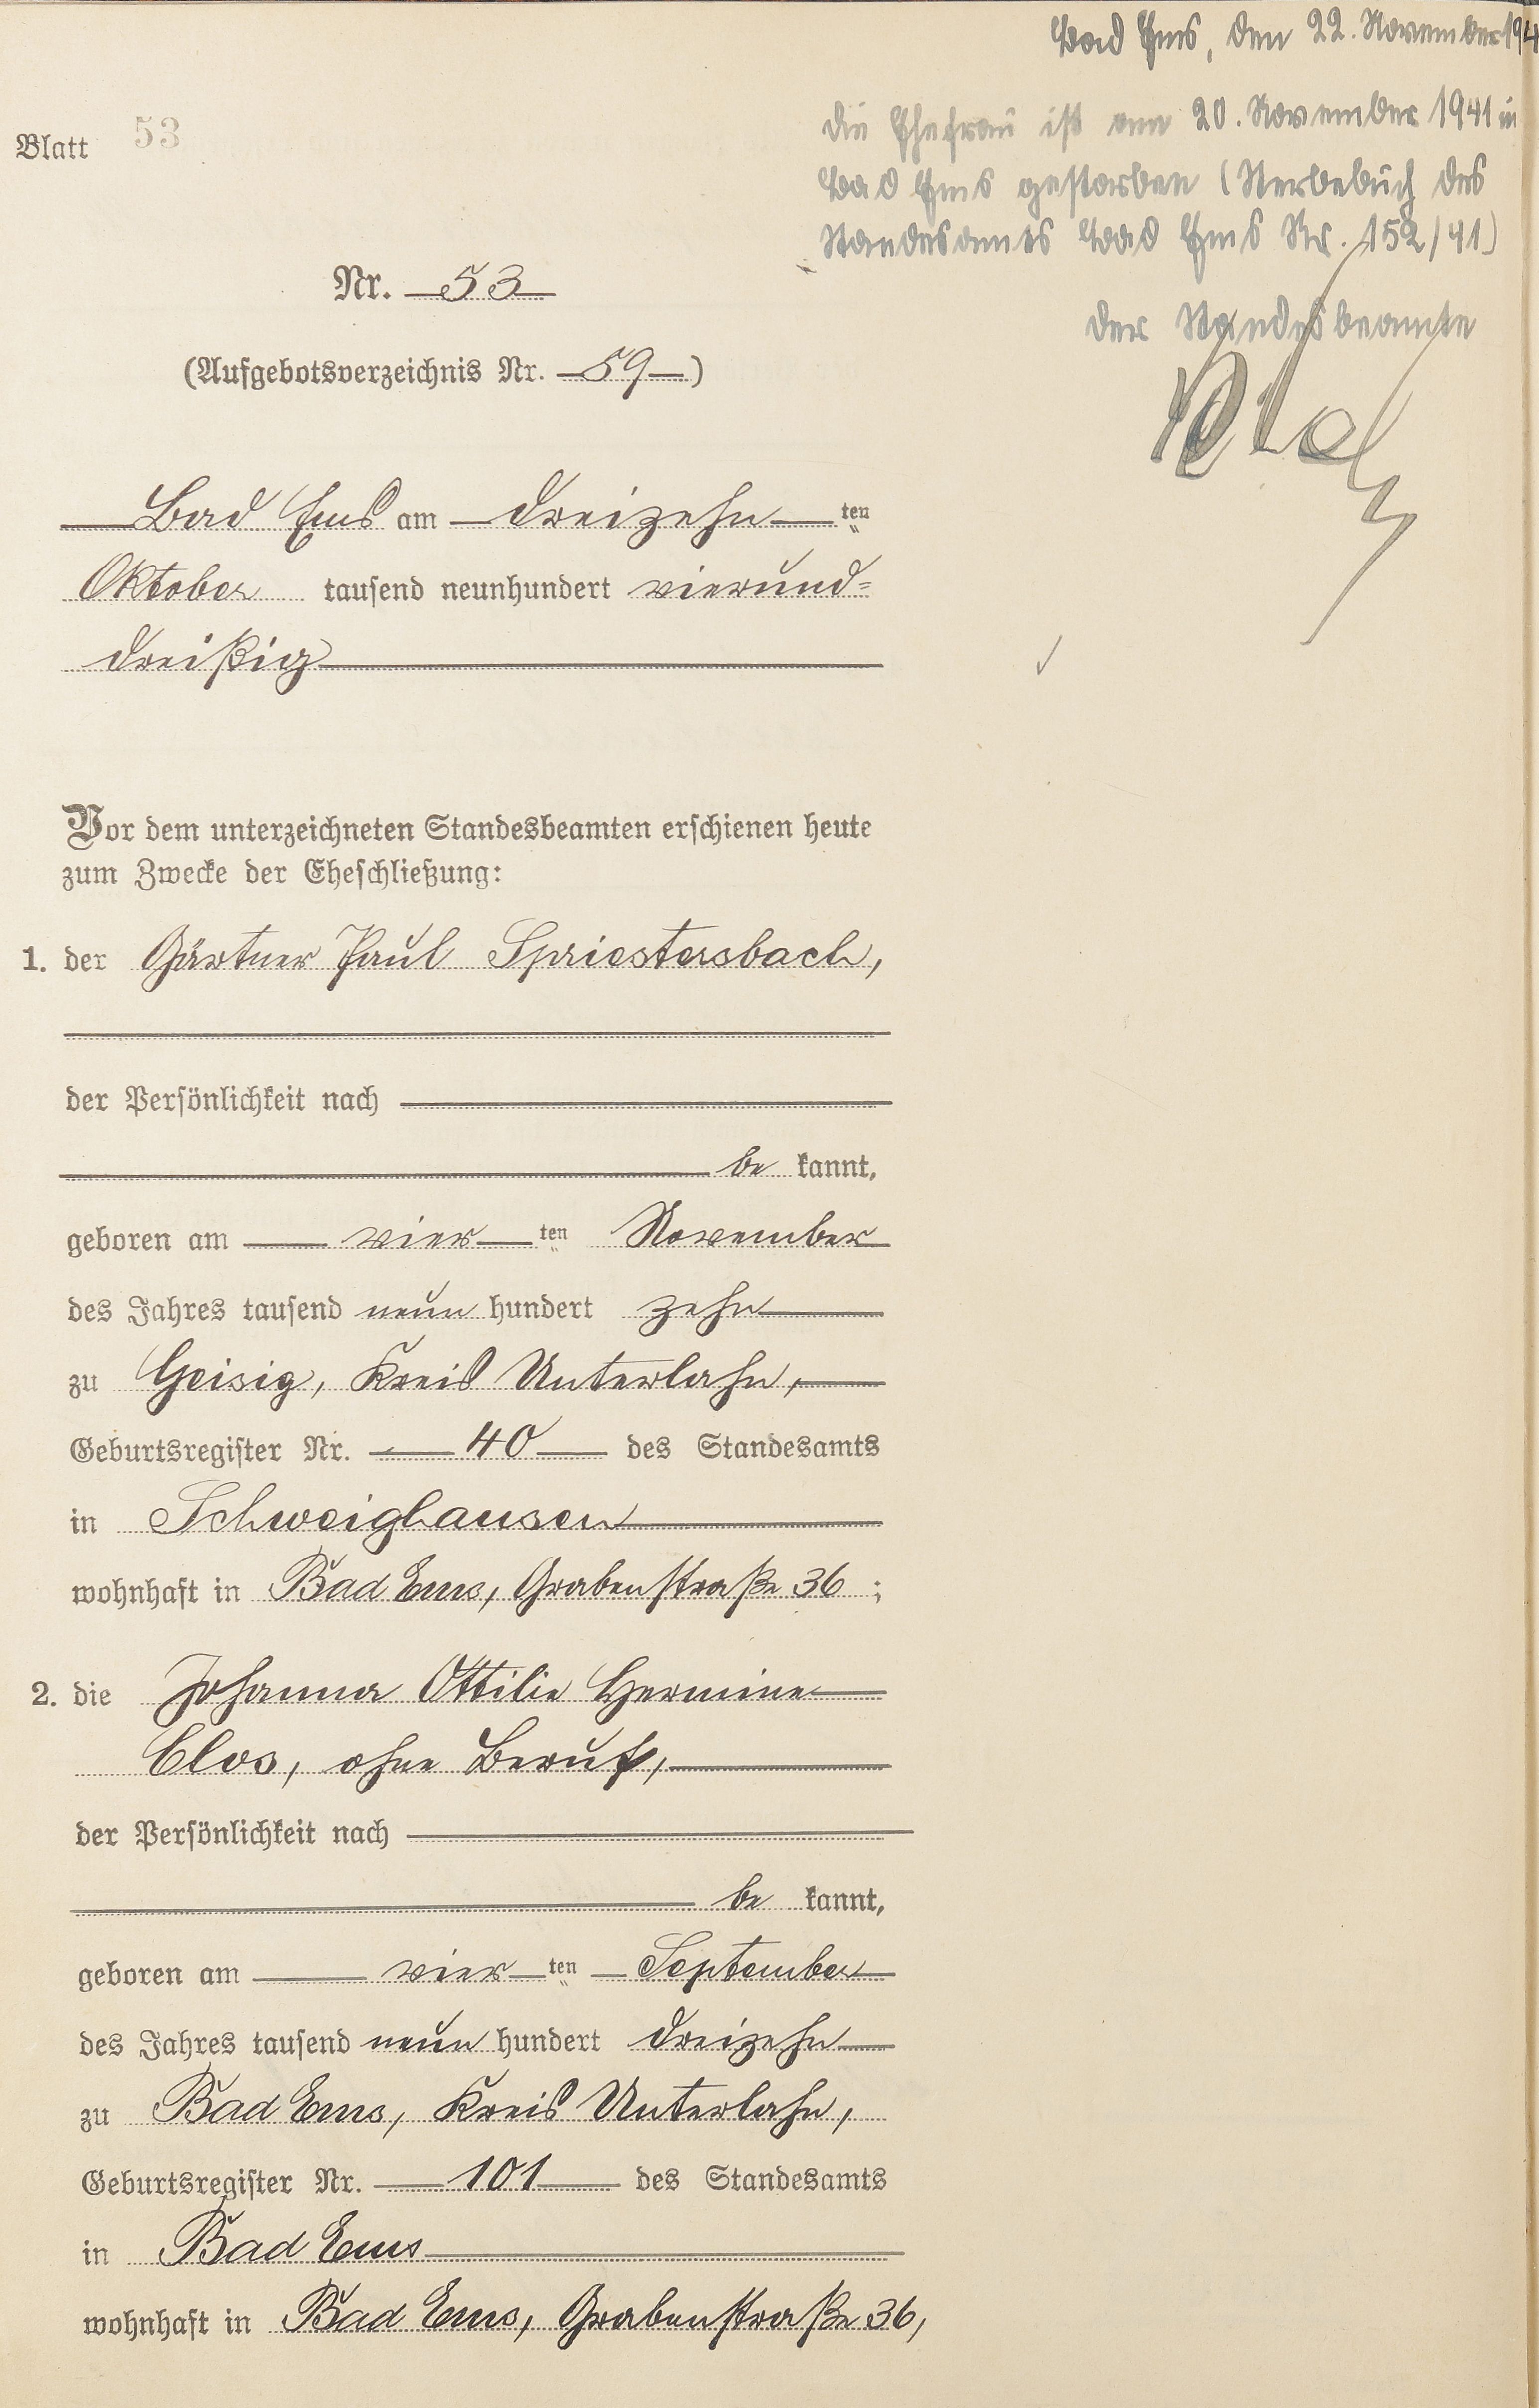 Bad Ems, den 22. November 194
Die Ehefrau ist am 20. November 1941 in
Bad Ems gestorben (Sterbebuch des
Standesamts Bad Ems Nr. 152/41)
Der Standesbeamte
Blatt 53
Nr. 53
(Aufgebotsverzeichnis Nr. 59)
Bad Ems am dreizehnten
Oktober tausend neunhundert vierund-
dreißig
Vor dem unterzeichneten Standesbeamten erschienen heute
zum Zwecke der Eheschließung:
1. der Gärtner Paul Spriestersbach,
der Persönlichkeit nach
be kannt,
geboren am vierten November
des Jahres tausend neun hundert zehn
zu Geisig, Kreis Unterlahn,
Geburtsregister Nr. 40 des Standesamts
in Schweighausen
wohnhaft in Bad Ems, Grabenstraße 36;
2. die Johanna Ottilie Hermine
Clos, ohne Beruf,
der Persönlichkeit nach
be kannt,
geboren am vierten September
des Jahres tausend neun hundert dreizehn
zu Bad Ems, Kreis Unterlahn,
Geburtsregister Nr. 101 des Standesamts
in Bad Ems
wohnhaft in Bad Ems, Grabenstraße 36,